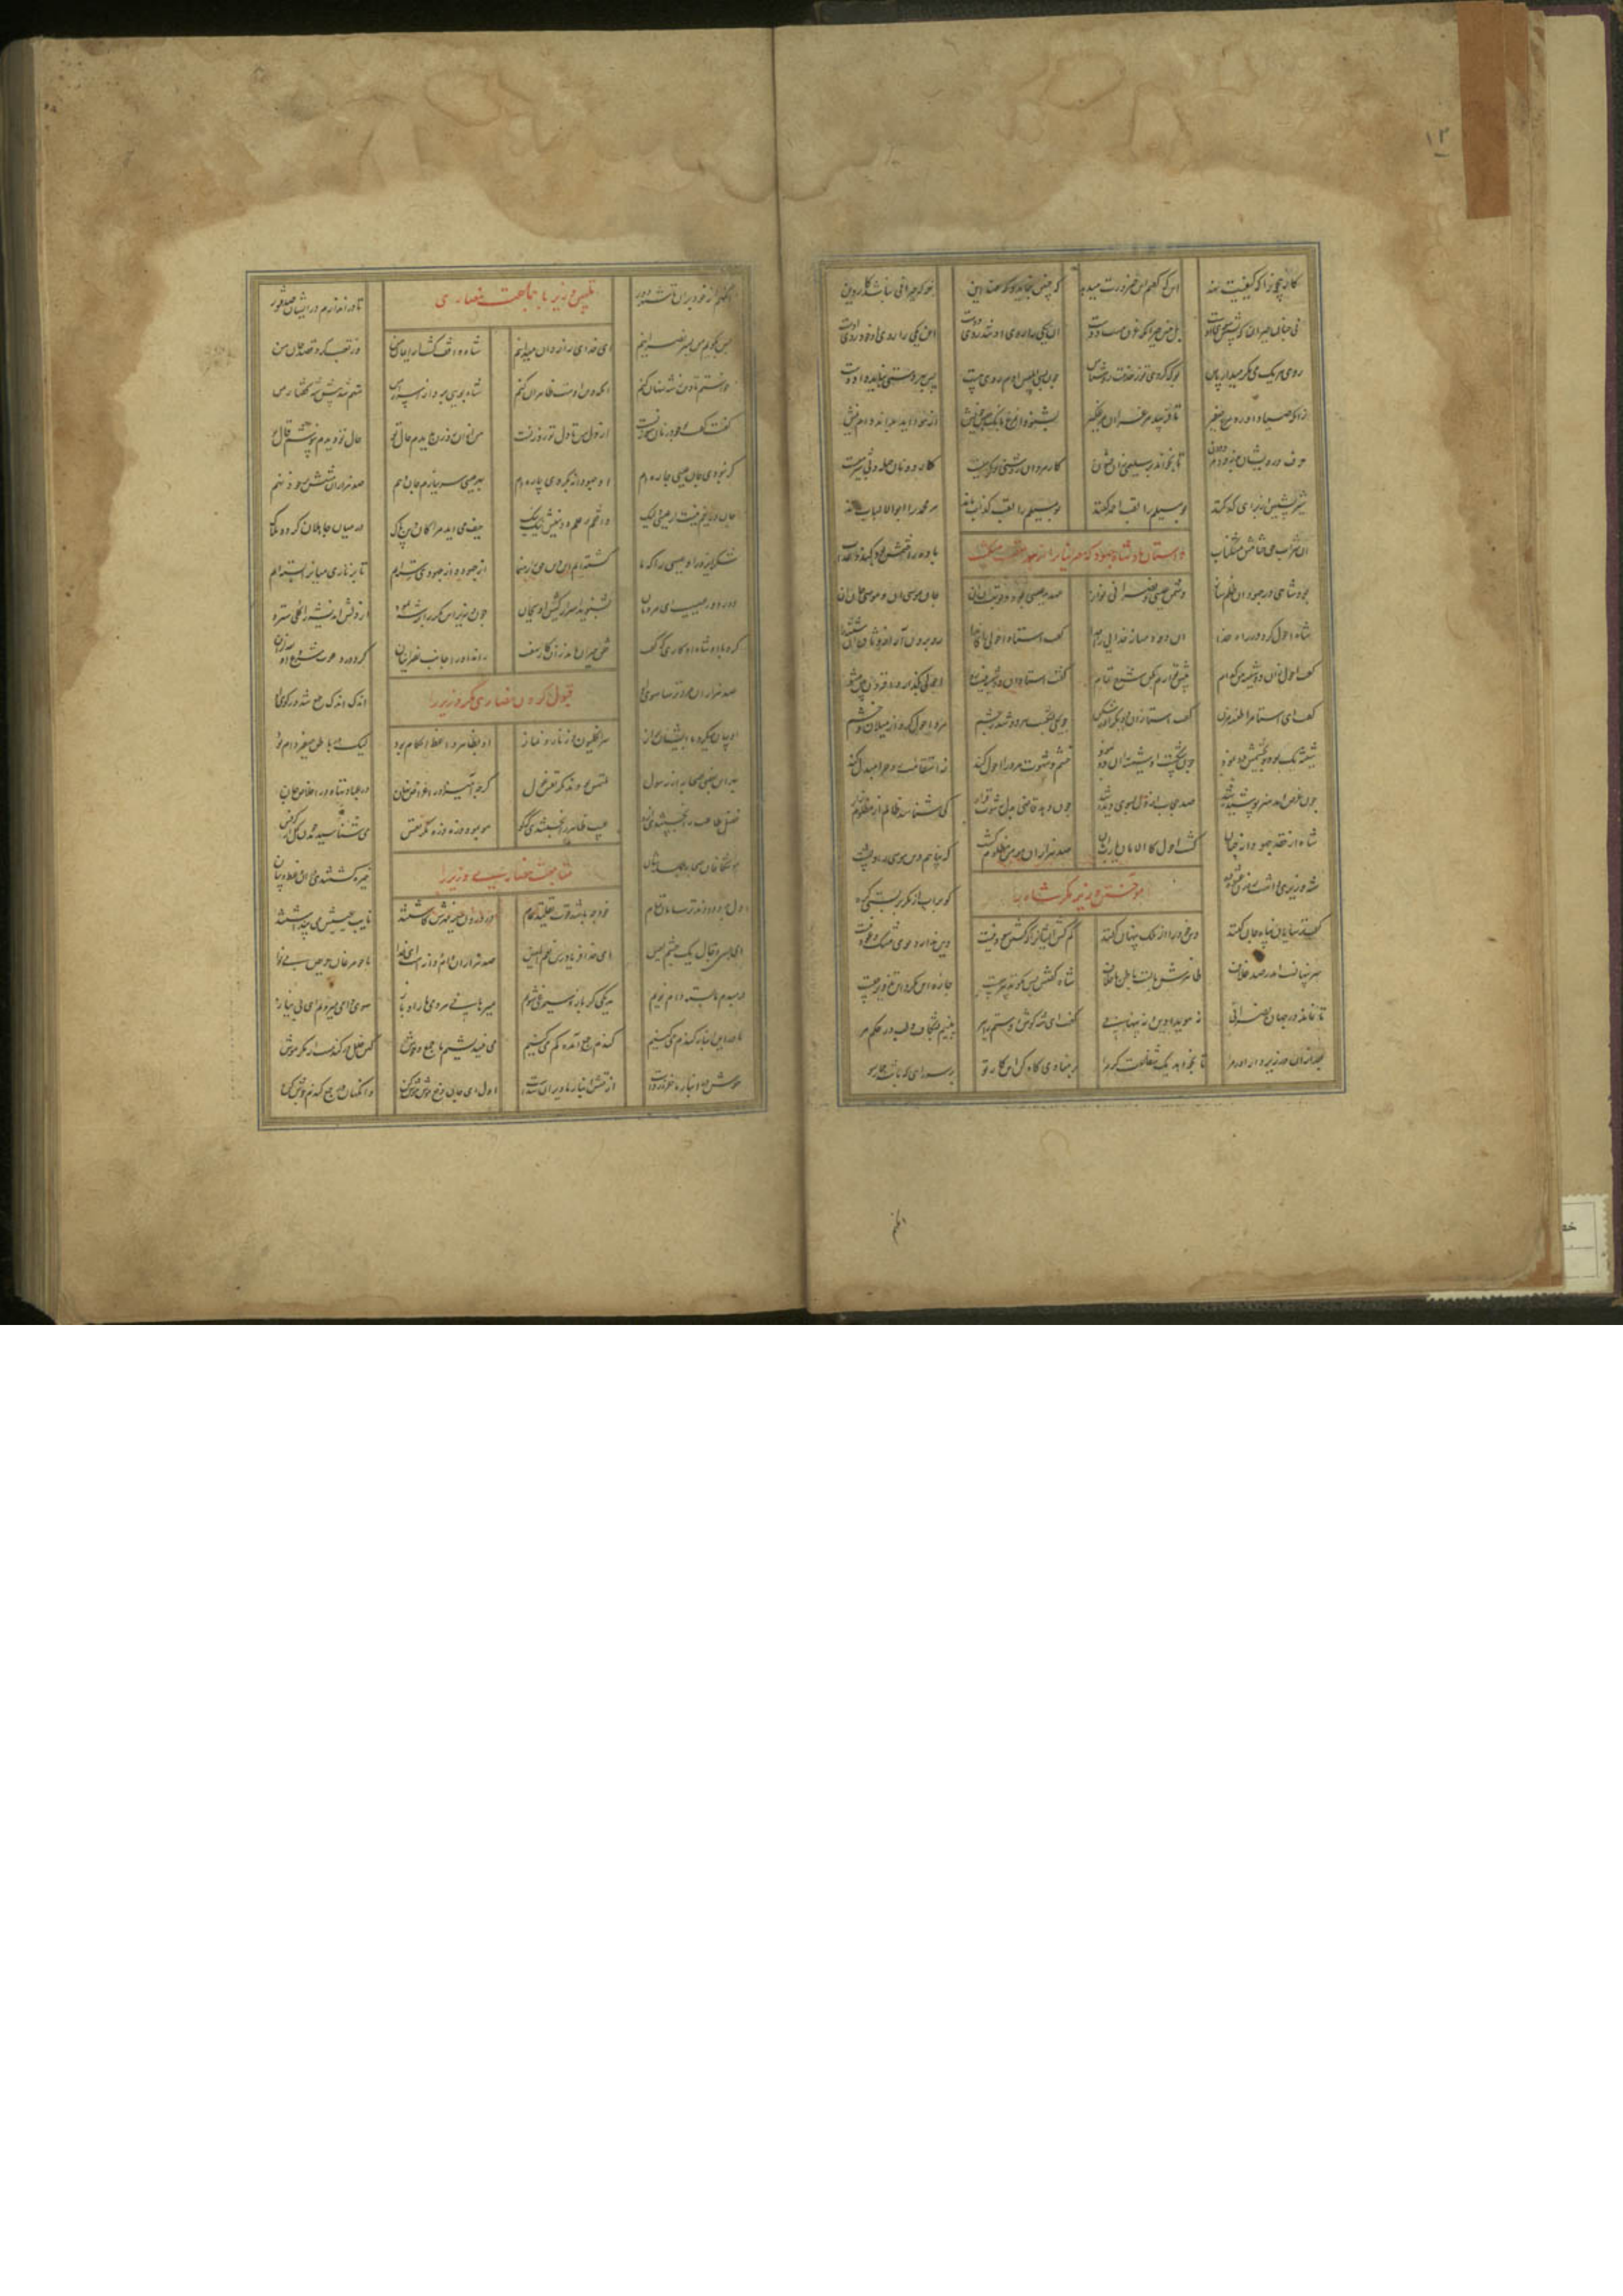 ۱۲
کار بیچون را که کیفیت نهد این که گفتم این ضرورت میدهد که چنین بنماید و گه ضد این جز که حیرانی نباشد کار دین
نی چنان حیران که پشتش سوی اوست بل چنین حیران که غرق و مست دوست آن یکی را روی او شد سوی دوست وان یکی را روی او خود روی اوست
روی هر یک می نگر میدار پاس بوک گردی تو ز خدمت روشناس چون بسی ابلیس آدم روی هست پس بهر دستی نشاید داد دست
زانکه صیاد آورد بانگ صفیر تا فریبد مرغ را آن مرغ گیر بشنود آن مرغ بانگ جنس خویش از هوا آید
حرف درویشان بدزدد مرد دون تا بخواند بر سلیمی زان فسون کار مردان روشنی و گرمیست کار دونان حیله و بی شرمیست
شیر پشمین از برای کد کنند بومسیلم را لقب احمد کنند بومسیلم را لقب کذاب ماند مر محمد را اولوالالباب ماند
آن شراب حق ختامش مشک ناب داستان پادشاه جهود که نصرانیان را از بهر تعصب میکشت باده را ختمش بود گند و عذاب
بود شاهی در جهودان ظلم ساز دشمن عیسی و نصرانی گداز عهد عیسی بود و نوبت آن او جان موسی او و موسی جان او
شاه احول کرد در راه خدا آن دو دمساز خدایی را جدا گفت استاد احولی را کاندرا رو برون آر از وثاق آن شیشه را
گفت احول زان دو شیشه من کدام پیش تو آرم بکن شرح تمام گفت استاد آن دو شیشه نیست رو احولی بگذار و افزون بین مشو
گفت ای استا مرا طعنه مزن گفت استا زان دو یک را در شکن چون یکی بشکست هر دو شد ز چشم مرد احول گردد از میلان و خشم
شیشه یک بود و بچشمش دو نمود چون شکست او شیشه را دیگر نبود خشم و شهوت مرد را احول کند ز استقامت روح را مبدل کند
چون غرض آمد هنر پوشیده شد صد حجاب از دل بسوی دیده شد چون دهد قاضی بدل رشوت قرار کی شناسد ظالم از مظلوم زار
شاه از حقد جهودانه چنان گشت احول کالامان یا رب امان صد هزاران مومن مظلوم کشت که پناهم دین موسی را و پشت
شه وزیری داشت رهزن عشوه ده آموختن وزیر مکر شاه را کو بر آب از مکر بر بستی گره
گفت ترسایان پناه جان کنند دین خود را از ملک پنهان کنند کم کش ایشان را که کشتن سود نیست دین ندارد بوی مشک و عود نیست
سر پنهانست اندر صد غلاف ظاهرش با تست باطن بر خلاف شاه گفتش پس بگو تدبیر چیست چاره این مکر و این تزویر چیست
تا نماند در جهان نصرانی نه هویدا دین و نه پنهانی گفت ای شه گوش و دستم را ببر بینیم بشکاف و لب در حکم مر
بعد از آن در زیر دار آور مرا تا بخواهد یک شفاعت گر مرا بر منادی گاه کن این کار تو بر سر راهی که باشد چارسو
آنگهم از خود بران تا شهر دور تلبیس وزیر با جماعت نصاری تا در اندازم در ایشان صد فتور
پس بگویم من بسر نصرانیم ای خدای رازدان میدانیم شاه واقف گشت از ایمان من وز تعصب کرد قصد جان من
خواستم تا دین ز شه پنهان کنم آنکه دین اوست ظاهر آن کنم شاه بویی برد از اسرار من متهم شد پیش شه گفتار من
گفت گفت تو چو در نان سوزنست از دل من تا دل تو روزنست من از آن روزن بدیدم حال تو حال تو دیدم ننوشم قال تو
گر نبودی جان عیسی چاره ام او جهودانه بکردی پاره ام بهر عیسی سر ببازم جان دهم صد هزاران منتش بر خود نهم
جان دریغم نیست از عیسی لیک واقفم بر علم دینش نیک نیک حیف می آید مرا کان دین پاک در میان جاهلان گردد هلاک
شکر ایزد را و عیسی را که ما گشته ایم این دین حق را رهنما از جهود و از جهودی رسته ایم تا بزناری میان را بسته ایم
دور دور عیسیست ای مردمان بشنوید اسرار کیش او بجان چون وزیر این مکر را بر شه شمرد از دلش اندیشه را کلی سترد
کرد با او شاه آن کاری که گفت خلق حیران مانده زان کار نهفت راند او را جانب نصرانیان کرد در دعوت شروع او بعد از آن
صد هزاران مرد ترسا سوی او قبول کردن نصاری مکر وزیر را اندک اندک جمع شد در کوی او
او بیان میکرد با ایشان براز سر انگلیون و زنار و نماز او بظاهر واعظ احکام بود لیک در باطن صفیر و دام بود
بهر این بعضی صحابه از رسول ملتمس بودند مکر نفس غول کو چه آمیزد ز اغراض نهان در عبادتها و در اخلاص جان
فضل طاعت را نجستندی ازو عیب ظاهر را بجستندی که کو مو بمو و ذره ذره مکر نفس می شناسیدند چون گل از کرفس
موشکافان صحابه متابعت نصاری وزیر را خیره گشتندی در آن وعظ و بیان
دل بدو دادند ترسایان تمام خود چه باشد قوت تقلید عام در درون سینه مهرش کاشتند نایب عیسیش می پنداشتند
او بسر دجال یک چشم لعین ای خدا فریاد رس نعم المعین صد هزاران دام و دانه است ای خدا ما چو مرغان حریص بی نوا
دمبدم ما بسته دام نویم هر یکی گر باز و سیمرغی شویم میرهانی هر دمی ما را و باز سوی دامی میرویم ای بی نیاز
ما درین انبار گندم میکنیم گندم جمع آمده گم میکنیم می نیندیشیم ما جمع و هوش کین خلل در گندمست از مکر موش
موش در انبار ما حفره زدست از فنش انبار ما ویران شدست اول ای جان دفع شر موش کن وانگهان در جمع گندم جوش کن